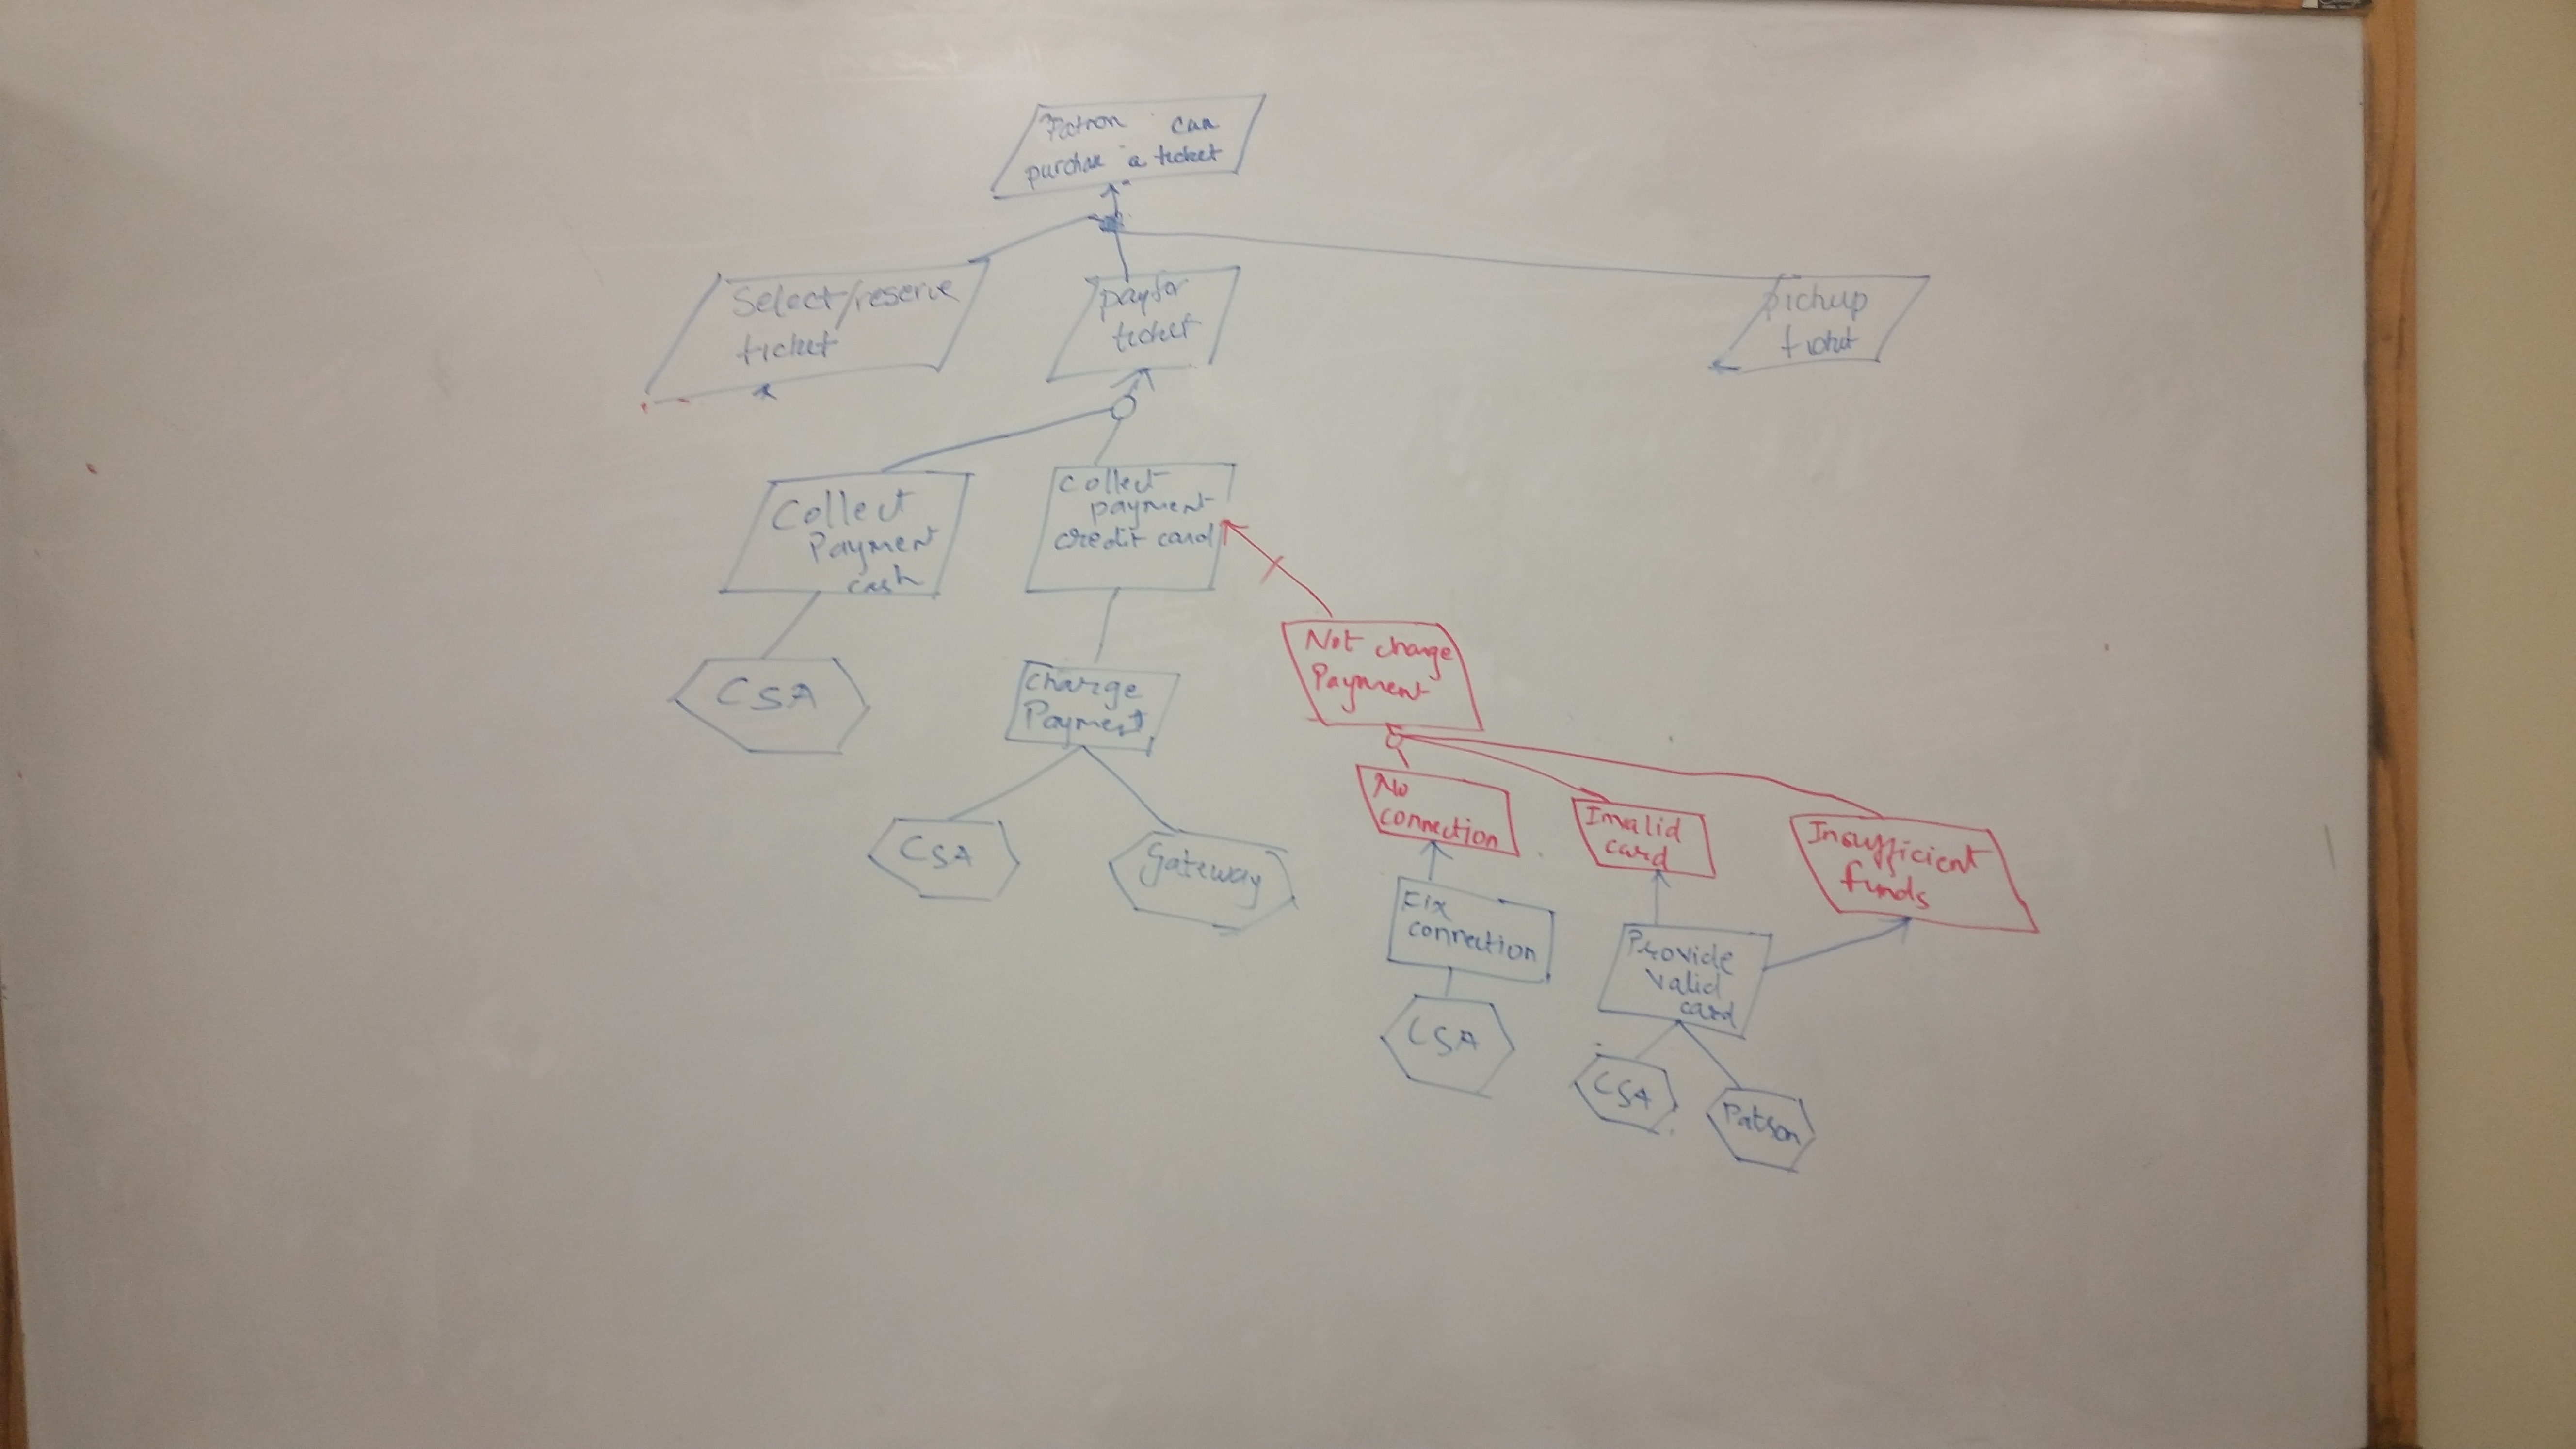 Patron can
purchase a ticket
Select/reserve
ticket
pay for
ticket
pickup
ticket
Collect
Payment
cash
collect
payment
credit card
CSA
charge
Payment
CSA
Gateway
Not charge
Payment
No
connection
Invalid
card
Insufficient
funds
Fix
connection
Provide
valid
card
CSA
CSA
Patron